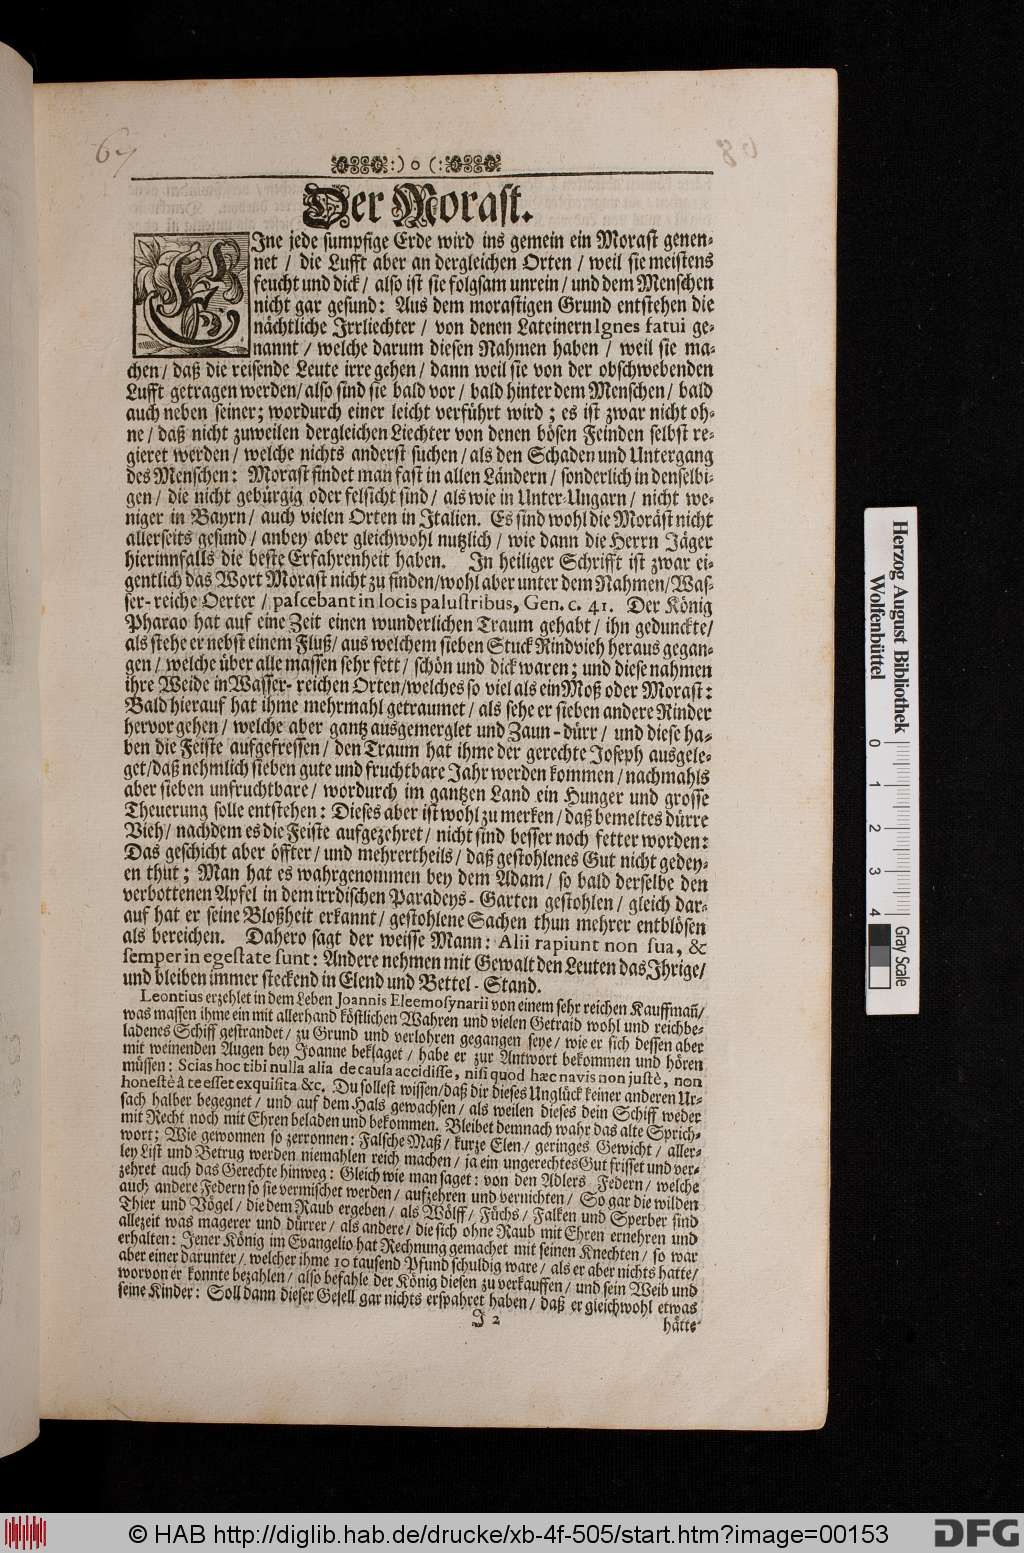 67
:) o (:
Der Morast.
EIne jede sumpfige Erde wird ins gemein ein Morast genen-
net / die Lufft aber an dergleichen Orten / weil sie meistens
feucht und dick / also ist sie folgsam unrein / und dem Menschen
nicht gar gesund: Aus dem morastigen Grund entstehen die
nächtliche Irrliechter / von denen Lateinern Ignes fatui ge-
nannt / welche darum diesen Nahmen haben / weil sie ma-
chen / daß die reisende Leute irre gehen / dann weil sie von der obschwebenden
Lufft getragen werden / also sind sie bald vor / bald hinter dem Menschen / bald
auch neben seiner; wordurch einer leicht verführt wird ; es ist zwar nicht oh-
ne / daß nicht zuweilen dergleichen Liechter von denen bösen Feinden selbst re-
gieret werden / welche nichts anderst suchen / als den Schaden und Untergang
des Menschen: Morast findet man fast in allen Ländern / sonderlich in denselbi-
gen / die nicht gebürgig oder felsicht sind / als wie in Unter-Ungarn / nicht we-
niger in Bayrn / auch vielen Orten in Italien. Es sind wohl die Moräst nicht
allerseits gesund / anbey aber gleichwohl nutzlich / wie dann die Herrn Jäger
hierinnfalls die beste Erfahrenheit haben. In heiliger Schrifft ist zwar ei-
gentlich das Wort Morast nicht zu finden / wohl aber unter dem Nahmen / Was-
ser-reiche Oerter / pascebant in locis palustribus, Gen. c. 41. Der König
Pharao hat auf eine Zeit einen wunderlichen Traum gehabt / ihn gedunckte /
als stehe er nebst einem Fluß / aus welchem sieben Stuck Rindvieh heraus gegan-
gen / welche über alle massen sehr fett / schön und dick waren; und diese nahmen
ihre Weide in Wasser-reichen Orten / welches so viel als ein Moß oder Morast:
Bald hierauf hat ihme mehrmahl getraumet / als sehe er sieben andere Rinder
hervor gehen / welche aber gantz ausgemerglet und Zaun-dürr / und diese ha-
ben die Feiste aufgefressen / den Traum hat ihme der gerechte Joseph ausgele-
get / daß nehmlich sieben gute und fruchtbare Jahr werden kommen / nachmahls
aber sieben unfruchtbare / wordurch im gantzen Land ein Hunger und grosse
Theuerung solle entstehen: Dieses aber ist wohl zu merken / daß bemeltes dürre
Vieh / nachdem es die Feiste aufgezehret / nicht sind besser noch fetter worden:
Das geschicht aber öffter / und mehrertheils / daß gestohlenes Gut nicht gedey-
en thut ; Man hat es wahrgenommen bey dem Adam / so bald derselbe den
verbottenen Apfel in dem irrdischen Paradeys-Garten gestohlen / gleich dar-
auf hat er seine Bloßheit erkannt / gestohlene Sachen thun mehrer entblösen
als bereichen. Dahero sagt der weisse Mann: Alii rapiunt non sua, &
semper in egestate sunt: Andere nehmen mit Gewalt den Leuten das Ihrige /
und bleiben immer steckend in Elend und Bettel-Stand.
Leontius erzehlet in dem Leben Joannis Eleemosynarii von einem sehr reichen Kauffmañ /
was massen ihme ein mit allerhand köstlichen Wahren und vielen Getraid wohl und reichbe-
ladenes Schiff gestrandet / zu Grund und verlohren gegangen seye / wie er sich dessen aber
mit weinenden Augen bey Joanne beklaget / habe er zur Antwort bekommen und hören
müssen: Scias hoc tibi nulla alia de causa accidisse, nisi quod hæc navis non justè, non
honestè à te esset exquisita &c. Du sollest wissen / daß dir dieses Unglück keiner anderen Ur-
sach halber begegnet / und auf dem Hals gewachsen / als weilen dieses dein Schiff weder
mit Recht noch mit Ehren beladen und bekommen. Bleibet demnach wahr das alte Sprich-
wort; Wie gewonnen so zerronnen: Falsche Maß / kurze Elen / geringes Gewicht / aller-
ley List und Betrug werden niemahlen reich machen / ja ein ungerechtes Gut frisset und ver-
zehret auch das Gerechte hinweg: Gleich wie man saget: von den Adlers Federn / welche
auch andere Federn so sie vermischet werden / aufzehren und vernichten / So gar die wilden
Thier und Vögel / die dem Raub ergeben / als Wölff / Füchs / Falken und Sperber sind
allezeit was magerer und dürrer / als andere / die sich ohne Raub mit Ehren ernehren und
erhalten: Jener König im Evangelio hat Rechnung gemachet mit seinen Knechten / so war
aber einer darunter / welcher ihme 10 tausend Pfund schuldig ware / als er aber nichts hatte /
worvon er konnte bezahlen / also befahle der König diesen zu verkauffen / und sein Weib und
seine Kinder: Soll dann dieser Gesell gar nichts erspahret haben / daß er gleichwohl etwas
J 2
hätte
Herzog August Bibliothek
Wolfenbüttel
0 1 2 3 4
Gray Scale
© HAB http://diglib.hab.de/drucke/xb-4f-505/start.htm?image=00153
DFG